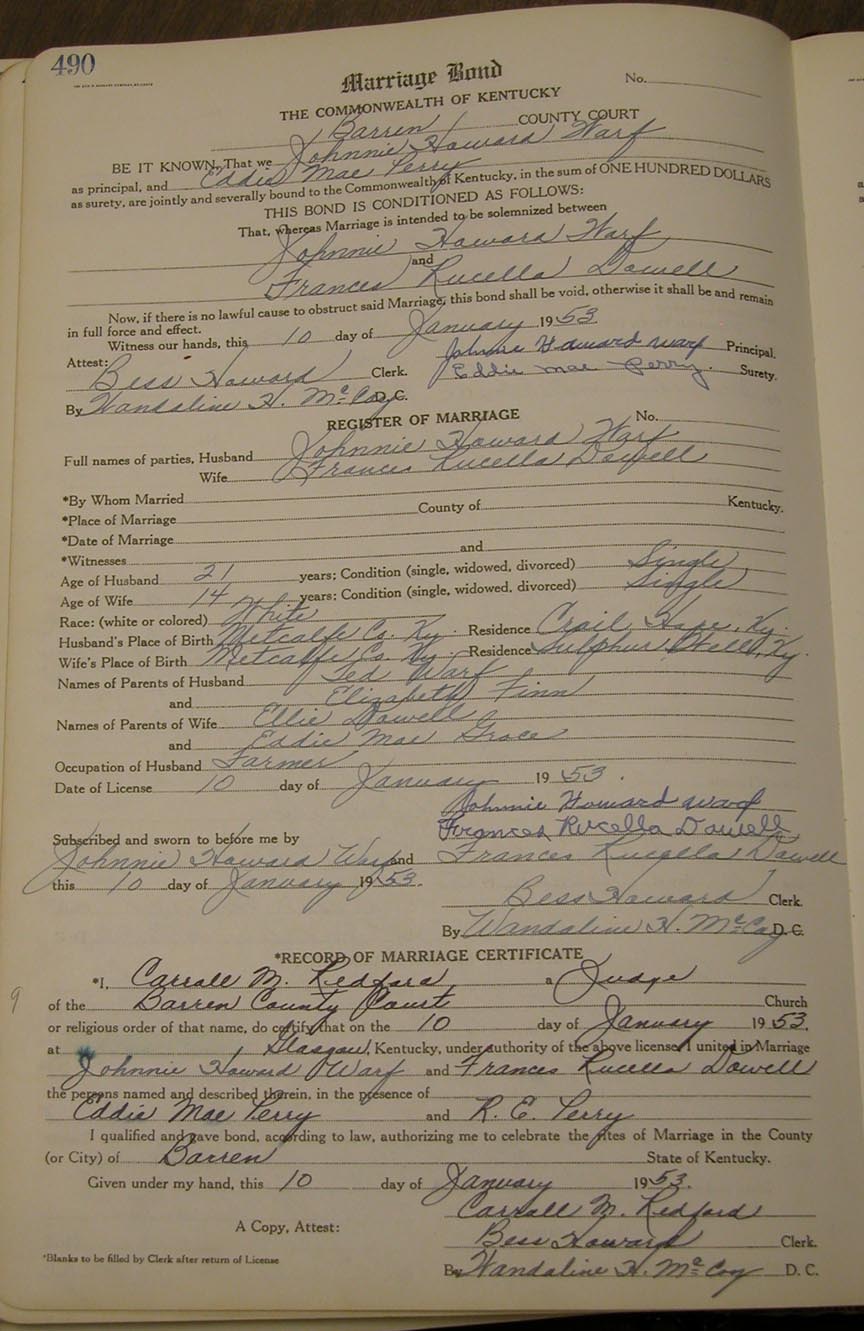 490
Marriage Bond
No.
THE COMMONWEALTH OF KENTUCKY
Barren COUNTY COURT
BE IT KNOWN, That we Johnnie Howard Warf
as principal, and Eddie Mae Perry
as surety, are jointly and severally bound to the Commonwealth of Kentucky, in the sum of ONE HUNDRED DOLLARS
THIS BOND IS CONDITIONED AS FOLLOWS:
That, whereas Marriage is intended to be solemnized between
Johnnie Howard Warf
and
Frances Rucella Dowell
Now, if there is no lawful cause to obstruct said Marriage, this bond shall be void, otherwise it shall be and remain
in full force and effect.
Witness our hands, this 10 day of January 1953
Johnnie Howard Warf Principal.
Attest:
Bess Howard Clerk. Eddie Mae Perry. Surety.
By Wandaline H. McCoy D. C.
REGISTER OF MARRIAGE No.
Full names of parties, Husband Johnnie Howard Warf
Wife Frances Rucella Dowell
*By Whom Married
*Place of Marriage County of Kentucky.
*Date of Marriage
*Witnesses and
Age of Husband 21 years; Condition (single, widowed, divorced) Single
Age of Wife 14 years; Condition (single, widowed, divorced) Single
Race: (white or colored) White
Husband's Place of Birth Metcalfe Co. Ky. Residence Crail Hope, Ky.
Wife's Place of Birth Metcalfe Co. Ky. Residence Sulphur Well, Ky.
Names of Parents of Husband Ted Warf
and Elizabeth Finn
Names of Parents of Wife Ellie Dowell
and Eddie Mae Grace
Occupation of Husband Farmer
Date of License 10 day of January 1953.
Johnnie Howard Warf
Subscribed and sworn to before me by Frances Rucella Dowell
Johnnie Howard Warf and Frances Rucella Dowell
this 10 day of January 1953.
Bess Howard Clerk.
By Wandaline H. McCoy D. C.
*RECORD OF MARRIAGE CERTIFICATE
*I, Carroll M. Redford a Judge
9
of the Barren County Court Church
or religious order of that name, do certify that on the 10 day of January 1953.
at Glasgow, Kentucky, under authority of the above license, I united in Marriage
Johnnie Howard Warf and Frances Rucella Dowell
the persons named and described therein, in the presence of
Eddie Mae Perry and R. E. Perry
I qualified and gave bond, according to law, authorizing me to celebrate the rites of Marriage in the County
(or City) of Barren State of Kentucky.
Given under my hand, this 10 day of January 1953.
Carroll M. Redford
A Copy, Attest: Bess Howard Clerk.
*Blanks to be filled by Clerk after return of License
By Wandaline H. McCoy D. C.